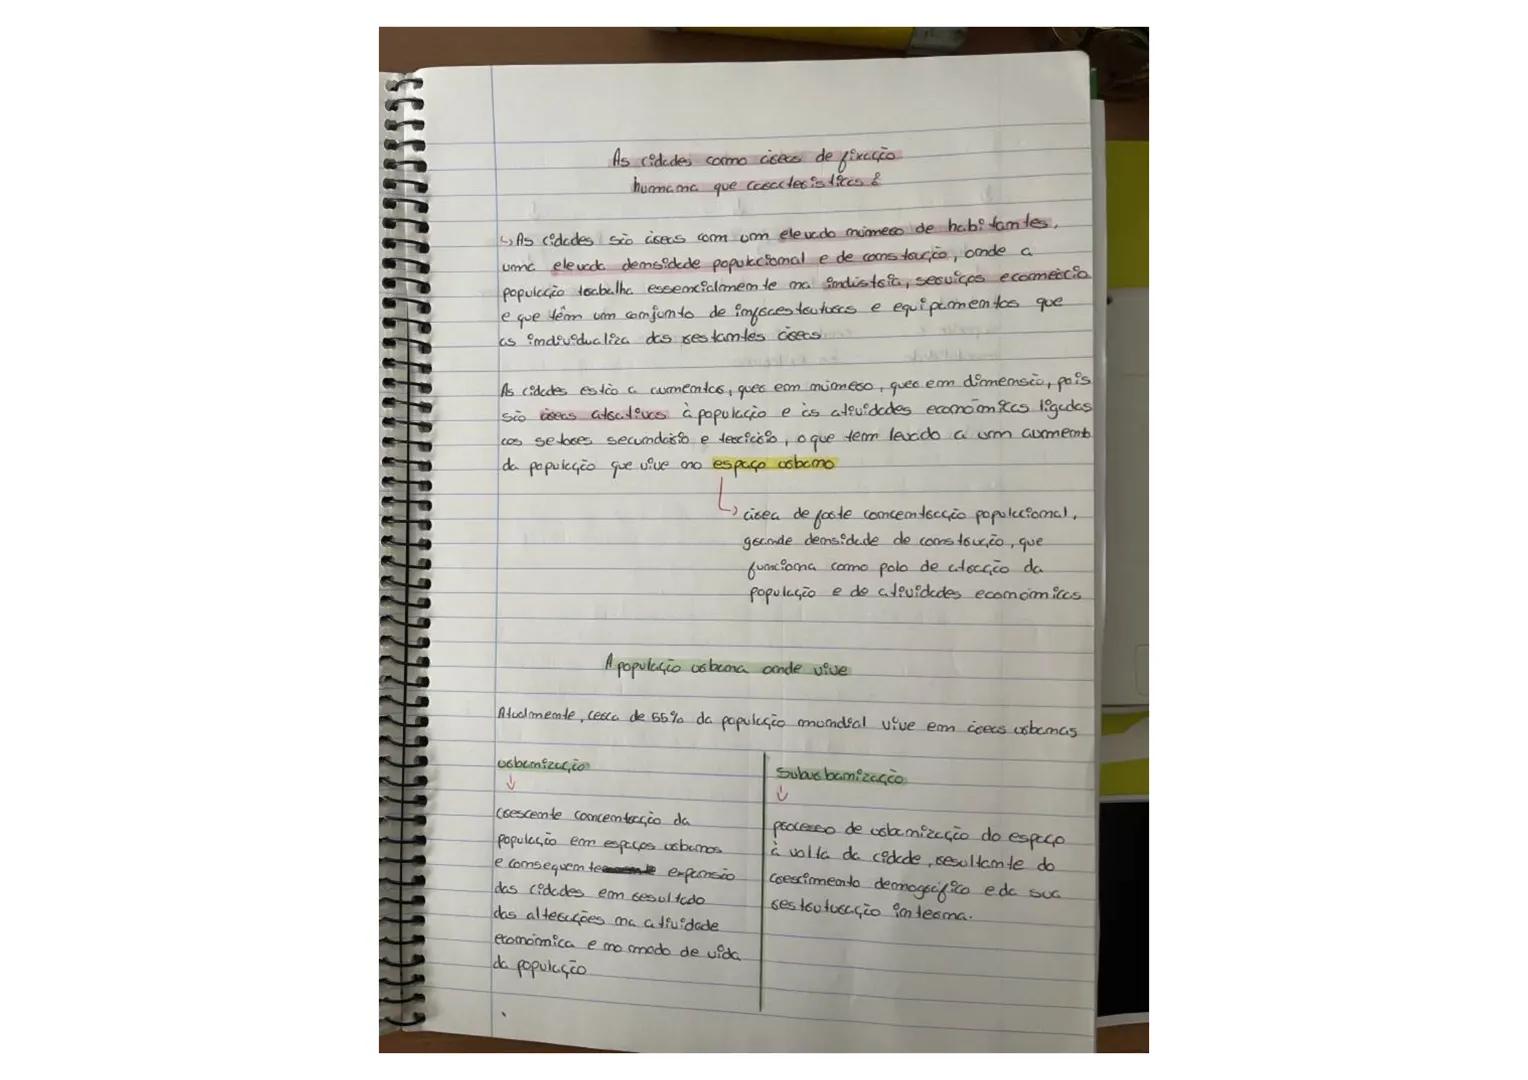 As cidades como áreas de fixação
humana que características?
↳ As cidades são áreas com um elevado número de habitantes,
uma elevada densidade populacional e de construção, onde a
população trabalha essencialmente na indústria, serviços e comércio
e que têm um conjunto de infraestruturas e equipamentos que
as individualiza das restantes áreas
As cidades estão a aumentar, quer em número, quer em dimensão, pois
são áreas atrativas à população e às atividades económicas ligadas
aos setores secundário e terciário, o que tem levado a um aumento
da população que vive no espaço urbano
↳ área de forte concentração populacional,
grande densidade de construção, que
funciona como polo de atração da
população e de atividades económicas
A população urbana onde vive
Atualmente, cerca de 55% da população mundial vive em áreas urbanas
urbanização
↓
crescente concentração da
população em espaços urbanos
e consequente expansão
das cidades em resultado
das alterações na atividade
económica e no modo de vida
da população
Suburbanização
↓
processo de urbanização do espaço
à volta da cidade, resultante do
crescimento demográfico e da sua
restruturação interna.